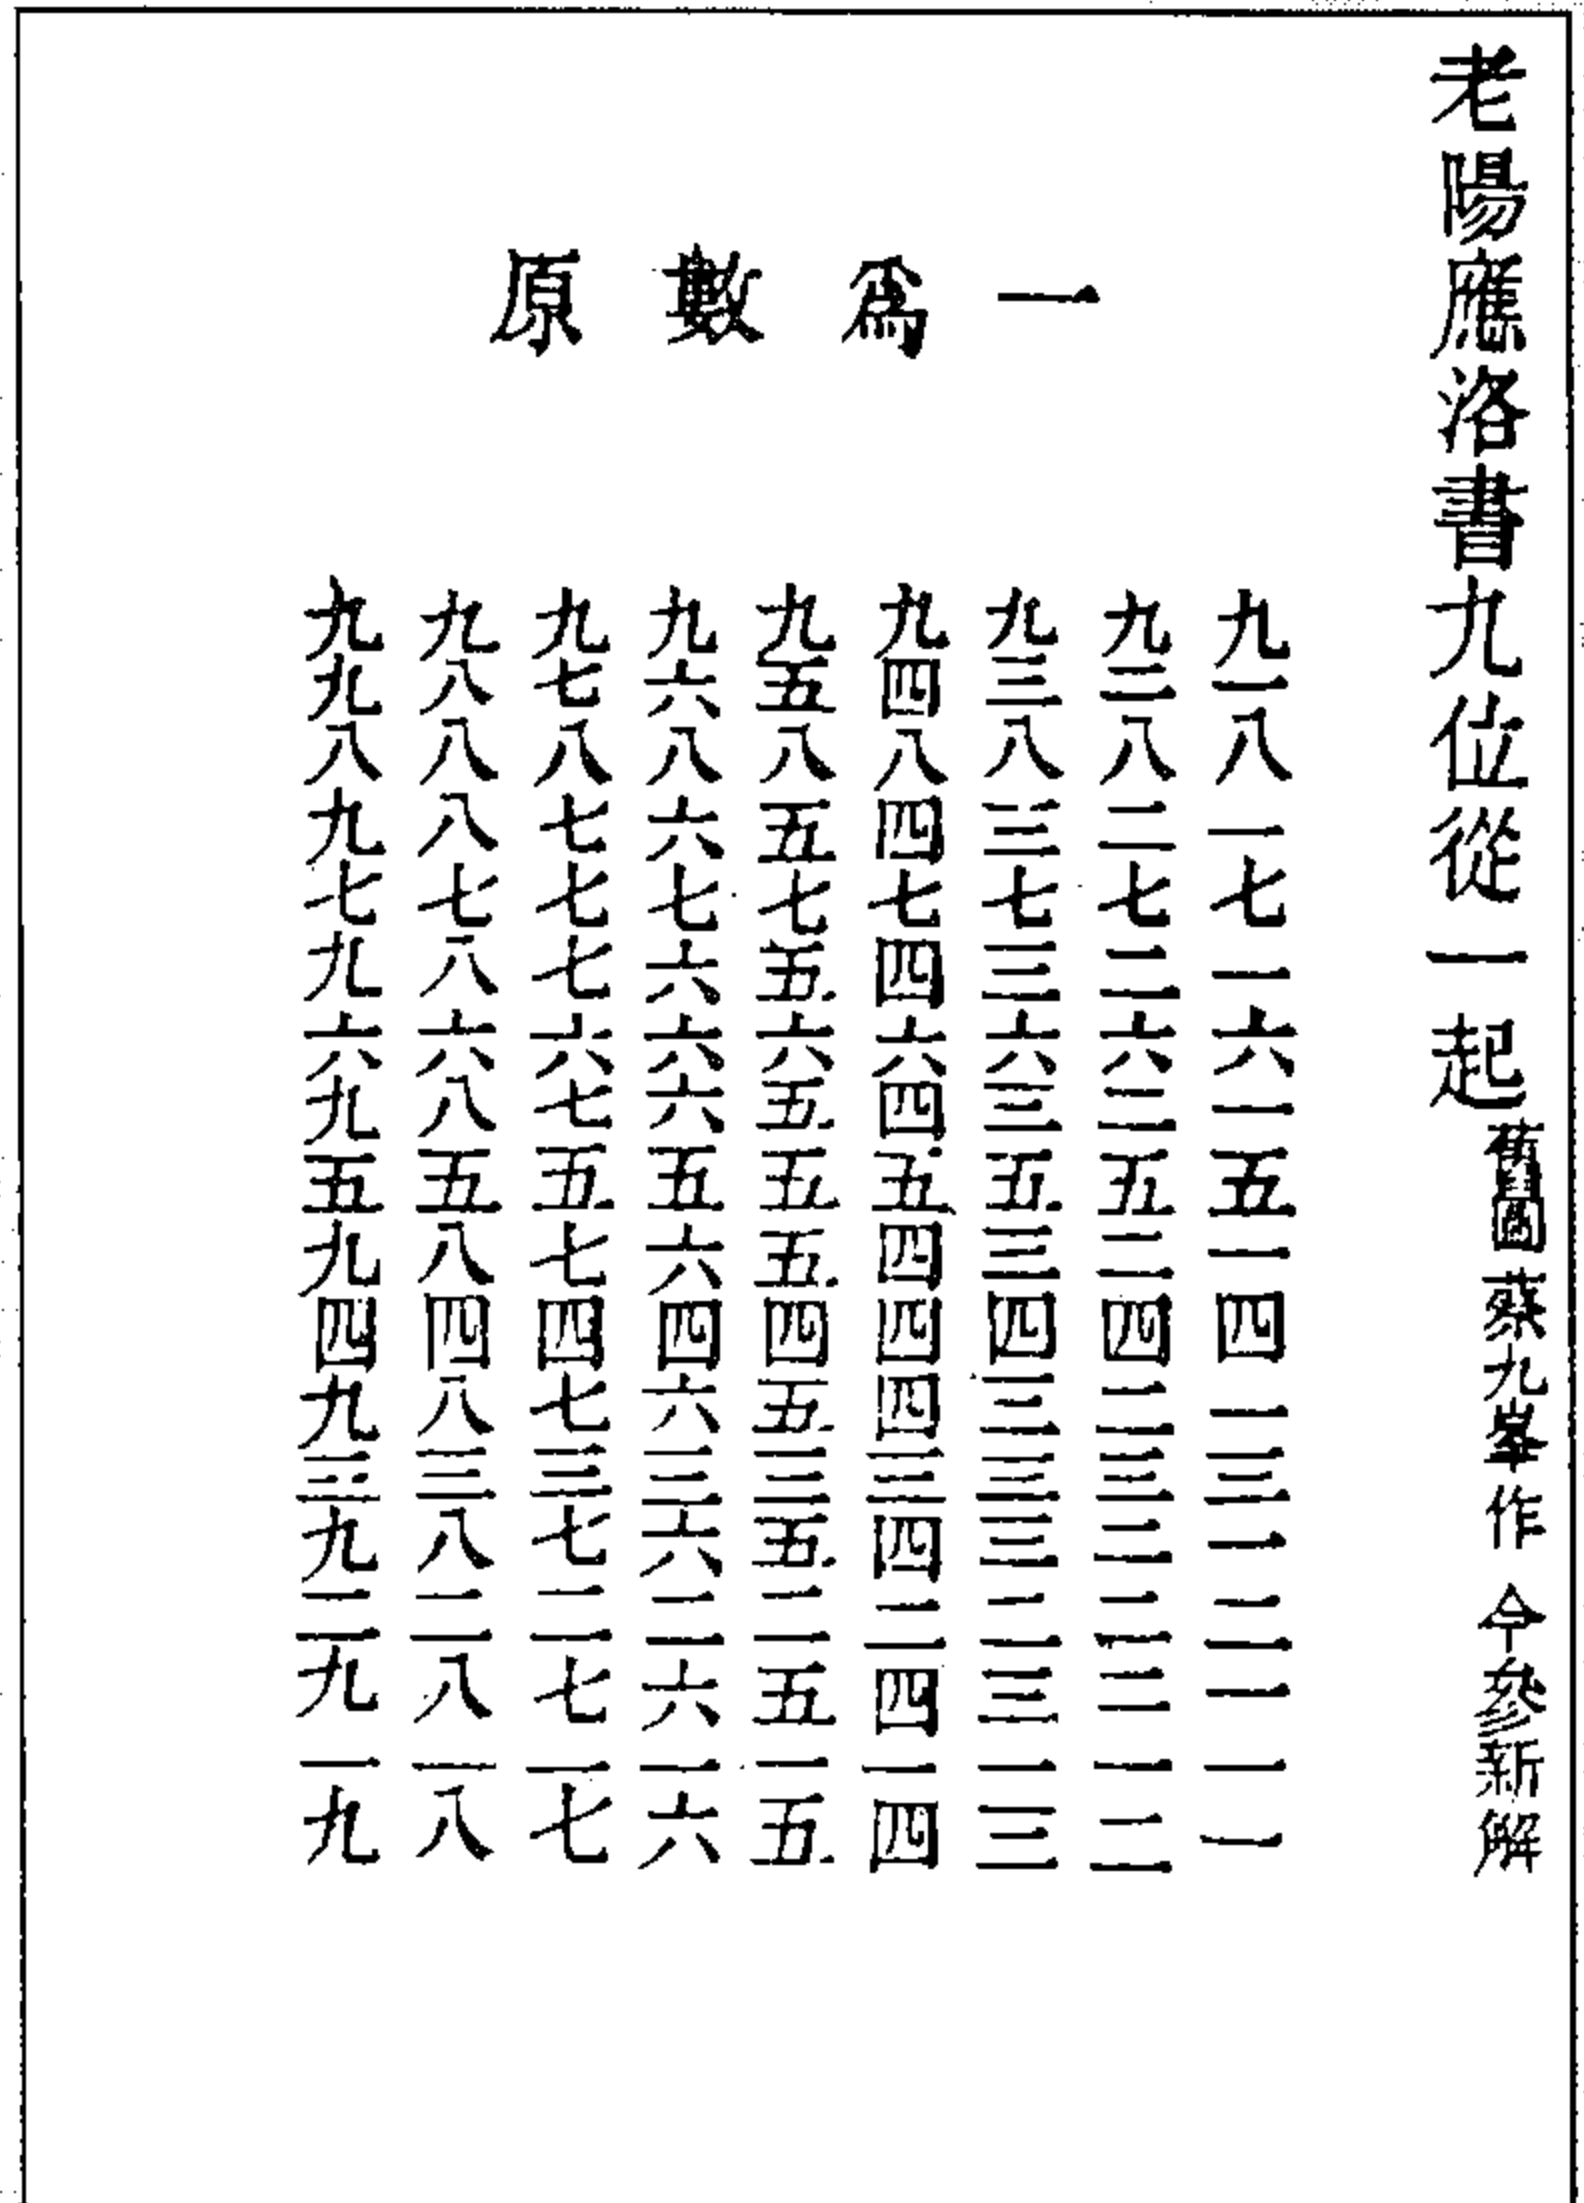 老陽應洛書九位從一起舊圖蔡九峯作 今參新解
一爲數原
九一八一七一六一五一四一三一二一一一
九二八二七二六二五二四二三二二二一二
九三八三七三六三五三四三三三二三一三
九四八四七四六四五四四四三四二四一四
九五八五七五六五五五四五三五二五一五
九六八六七六六六五六四六三六二六一六
九七八七七七六七五七四七三七二七一七
九八八八七八六八五八四八三八二八一八
九九八九七九六九五九四九三九二九一九